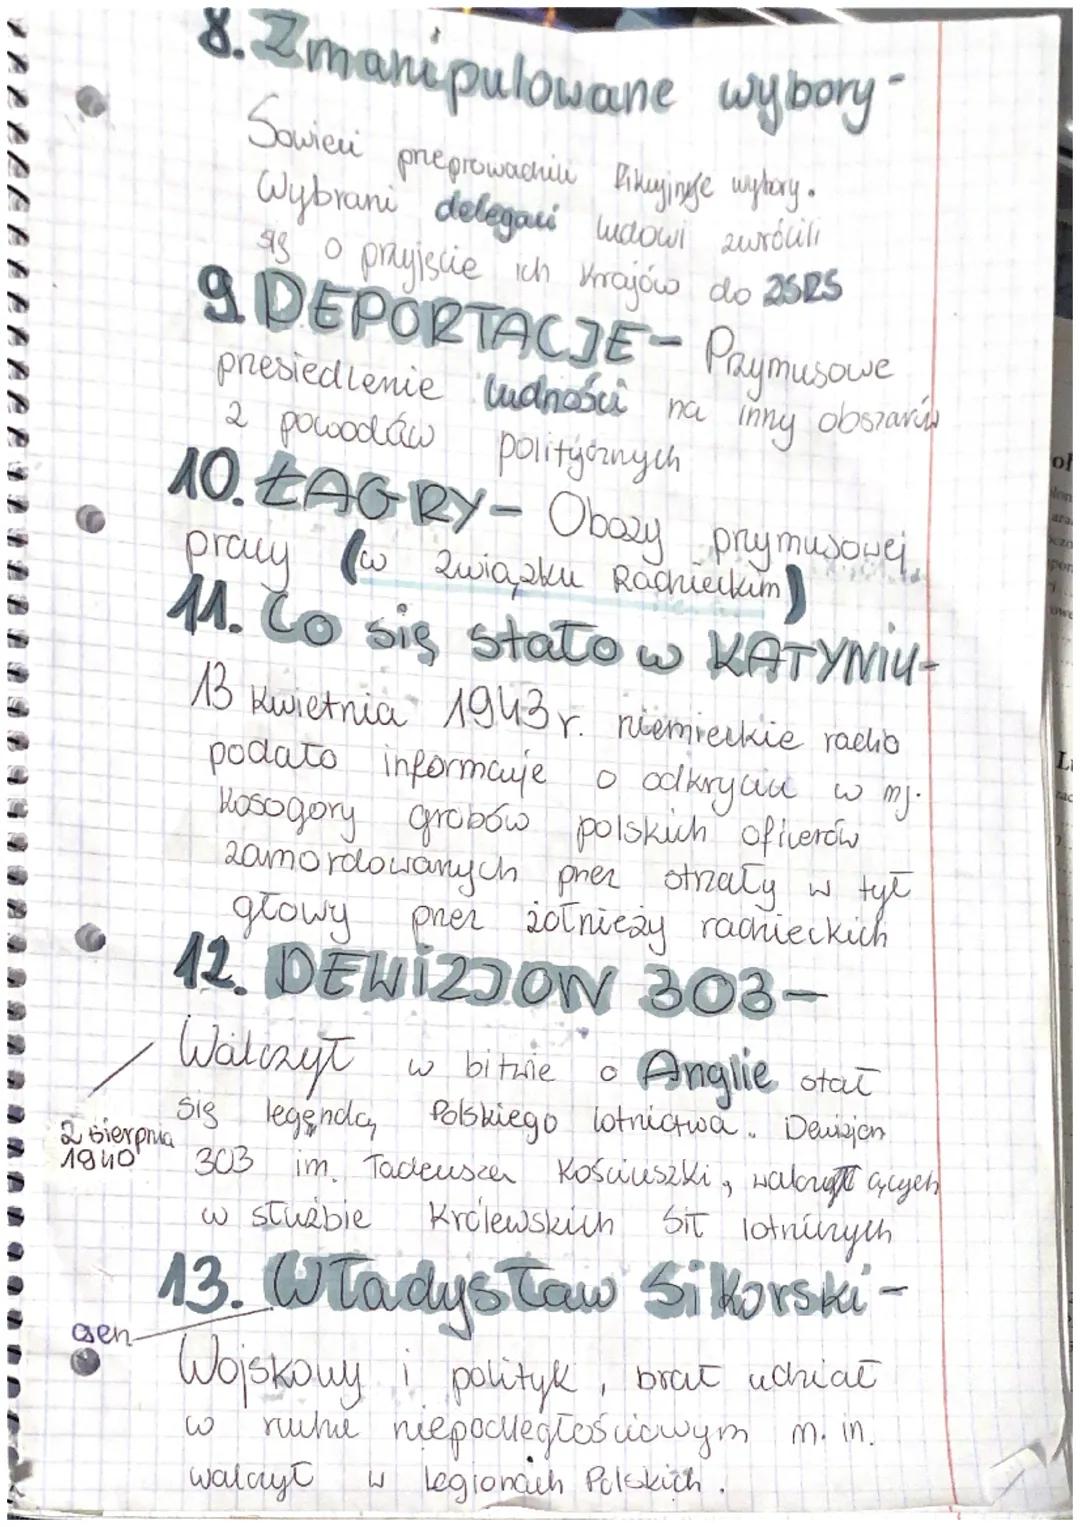 8. Zmanipulowane wybory -
Sowieci przeprowadzili fikcyjne wybory.
Wybrani delegaci ludowi zwrócili
się o przyjęcie ich krajów do ZSRS
9. DEPORTACJE - Przymusowe
przesiedlenie ludności na inny obszarów
z powodów politycznych
10. ŁAGRY - Obozy przymusowej
pracy (w Związku Radzieckim)
11. Co się stało w KATYNIU -
13 kwietnia 1943 r. niemieckie radio
podało informacje o odkryciu w mj.
Kosogory grobów polskich oficerów
zamordowanych przez strzały w tył
głowy przez żołnieży radzieckich
12. DEWIZJON 303 -
Walczył w bitwie o Anglie stał
się legendą Polskiego lotnictwa. Dewizjon
2 sierpnia
1940
303 im. Tadeusza Kościuszki, walczących
w służbie Królewskich Sił lotniczych
13. Władysław Sikorski -
gen
Wojskowy i polityk, brał udział
w ruchu niepodległościowym m. in.
walczył w Legionach Polskich.